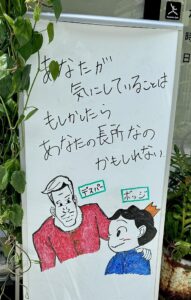 あなたが
気にしていることは
もしかしたら
あなたの長所なの
かもしれない
デスパー
ボッジ
時
日